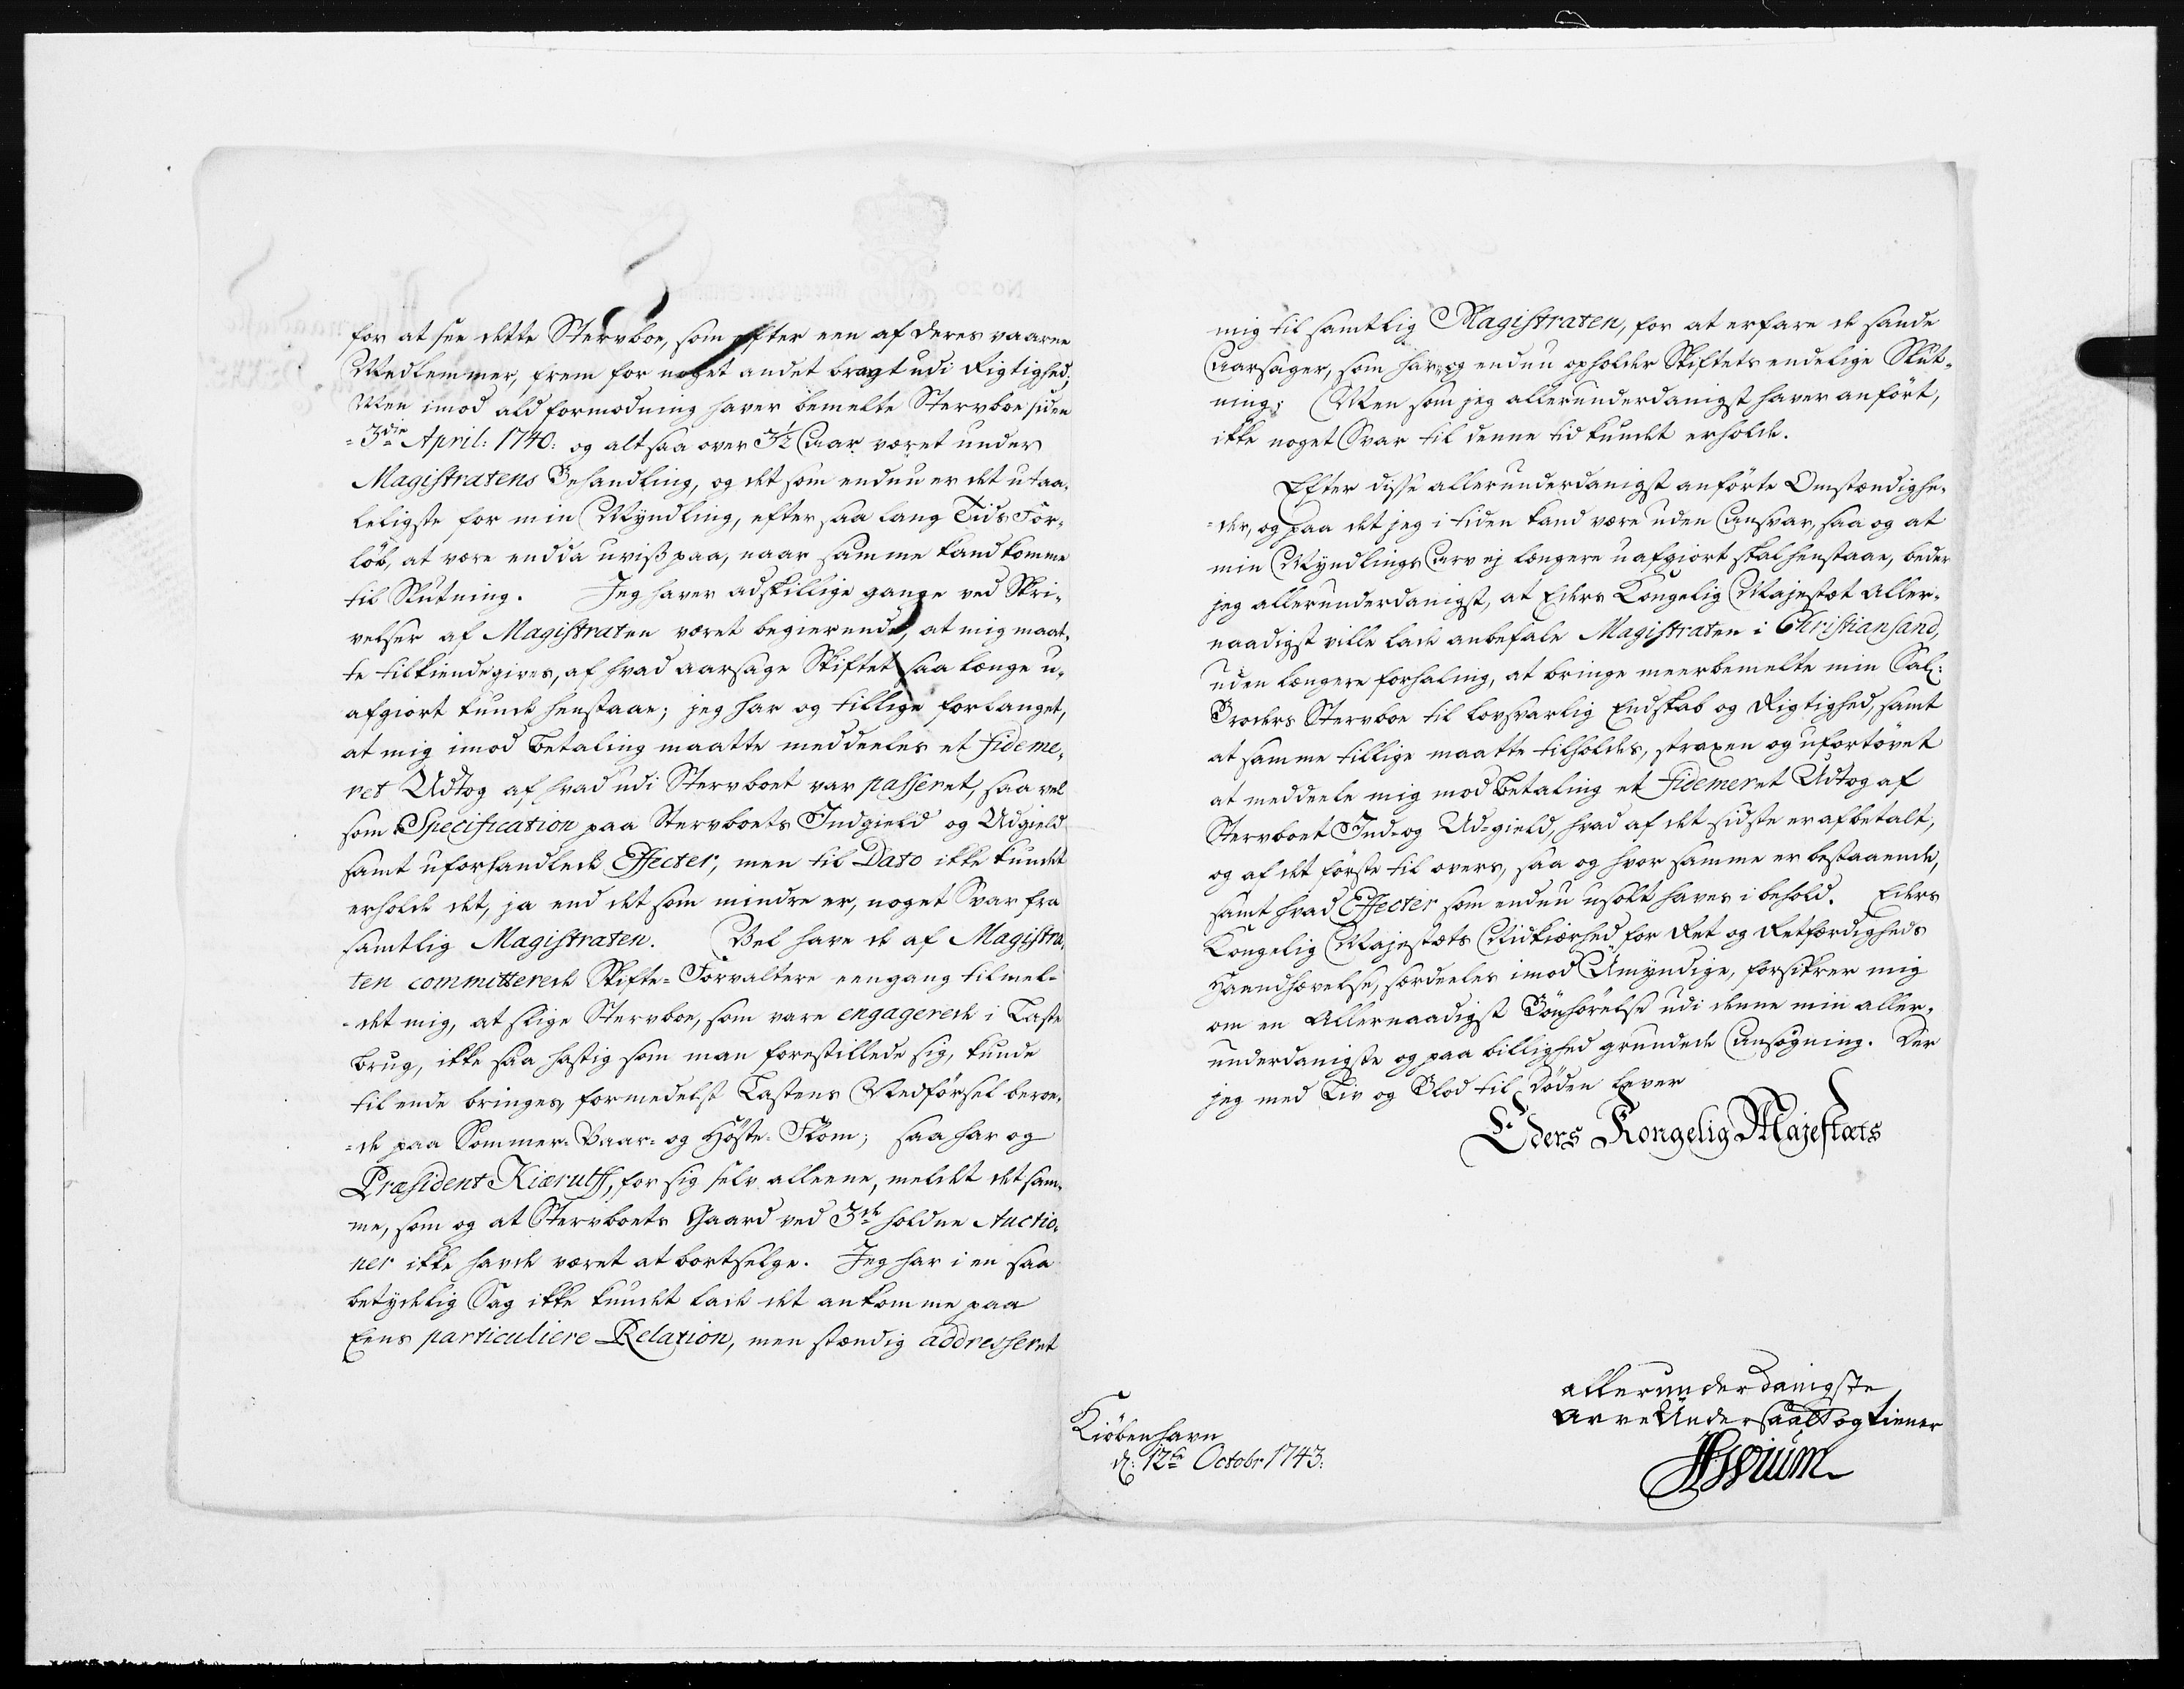 for at see dette Stervboe, som efter een af deres vaarne
Medlemmer, frem for noget andet bragt udi Rigtighed;
Men imod ald formodning haver bemelte Stervboe siden
3die April: 1740: og altsaa over 3½ Aar været under
Magistratens Behandling, og det som endnu er det utaa-
leligste for min Myndling, efter saa lang Tids For-
løb, at være endda uviss paa, naar samme kand komme
til Slutning. Jeg haver adskillige gange ved Skri-
velser af Magistraten været begierende, at mig maat-
te tilkiendegives, af hvad aarsage Skiftet saa længe u-
afgiort kunde henstaae; jeg har og tillige forlanget,
at mig imod Betaling maatte meddeeles et fideme-
ret Udtog af hvad udi Stervboet var passeret, saavel
som Specification paa Stervboets Indgield og Udgield
samt uforhandlede Effecter, men til Dato ikke kundet
erholde det, ja end det som mindre er, noget Svar fra
samtlig Magistraten. Vel have de af Magistra-
ten committerede Skifte-Forvaltere eengang tilmel-
det mig, at slige Stervboe, som vare engagerede i Laste
brug, ikke saa hastig som man forestillede sig, kunde
til ende bringes, formedelst Lastens Nedførsel beroe-
de paa Sommer- Vaar- og Høste-Flom; saa har og
Præsident Kiærulff, for sig selv alleene, meldet det sam-
me, som og at Stervboets Gaard ved 3de holdne Auctio-
ner ikke havde været at bortselge. Jeg har i en saa
betydelig Sag ikke kundet lade det ankomme paa
Eens particuliere Relation, men stændig addresseret
mig til samtlig Magistraten, for at erfare de sande
Aarsager, som har og endnu opholder Skiftets endelige Slut-
ning; Men som jeg allerunderdanigst haver anført,
ikke noget Svar til denne tid kundet erholde.
Efter disse allerunderdanigst anførte Omstændighe-
der, og paa det jeg i tiden kand være uden Ansvar, saa og at
min Myndlings Arv ej længere uafgiort skal henstaae, beder
jeg allerunderdanigst, at Eders Kongelig Majestæt Aller-
naadigst ville lade anbefale Magistraten i Christiansand,
uden længere forhaling, at bringe meerbemelte min Sal:
Broders Stervboe til lovsvarlig Endskab og Rigtighed, samt
at samme tillige maatte tilholdes, straxen og ufortøvet
at meddeele mig mod Betaling et fidemeret Udtog af
Stervboet Ind- og Ud-gield, hvad af det sidste er afbetalt,
og af det første til overs, saa og hvor samme er bestaaende,
samt hvad Effecter som endnu usolt haves i behold. Eders
Kongelig Majestæts Nidkiærhed for Ret og Retfærdigheds
Haandhævelse, særdeeles imod Umyndige, forsikrer mig
om en Allernaadigst Bønhørelse udi denne min aller-
underdanigste og paa billighed grundede Ansøgning. Der
jeg med Liv og Blod til Døden lever
Eders Kongelig Majestæts
allerunderdanigste
arve Undersaatt og tiener
Kiøbenhavn
d: 12te Octobr 1743: